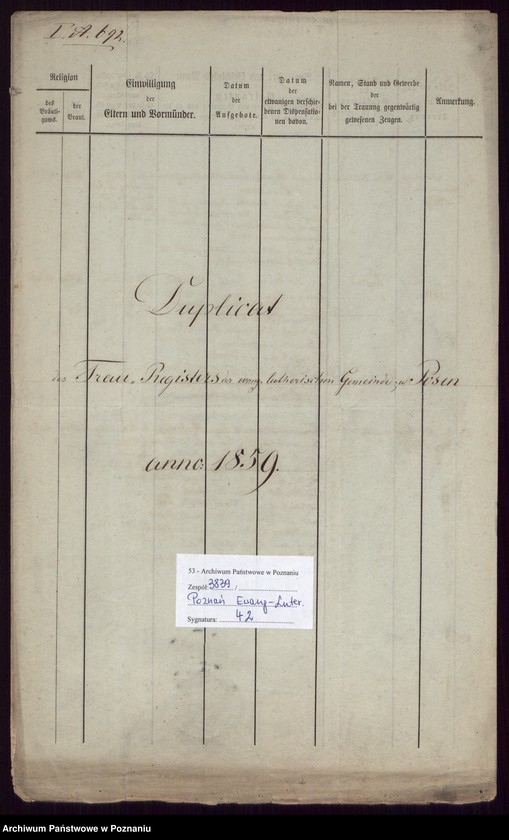 I. A. 692.
Religion
des Bräuti-
gams.
der
Braut.
Einwilligung
der
Eltern und Vormünder.
Datum
der
Aufgebote.
Datum
der
etwanigen verschie-
denen Dispensatio-
nen davon.
Namen, Stand und Gewerbe
der
bei der Trauung gegenwärtig
gewesenen Zeugen.
Anmerkung.
Duplicat
des Trau-Registers der evang. lutherischen Gemeinde zu Posen
anno: 1859.
53 - Archiwum Państwowe w Poznaniu
Zespół: 3839
Poznań Ewang-Luter.
Sygnatura: 42
Archiwum Państwowe w Poznaniu